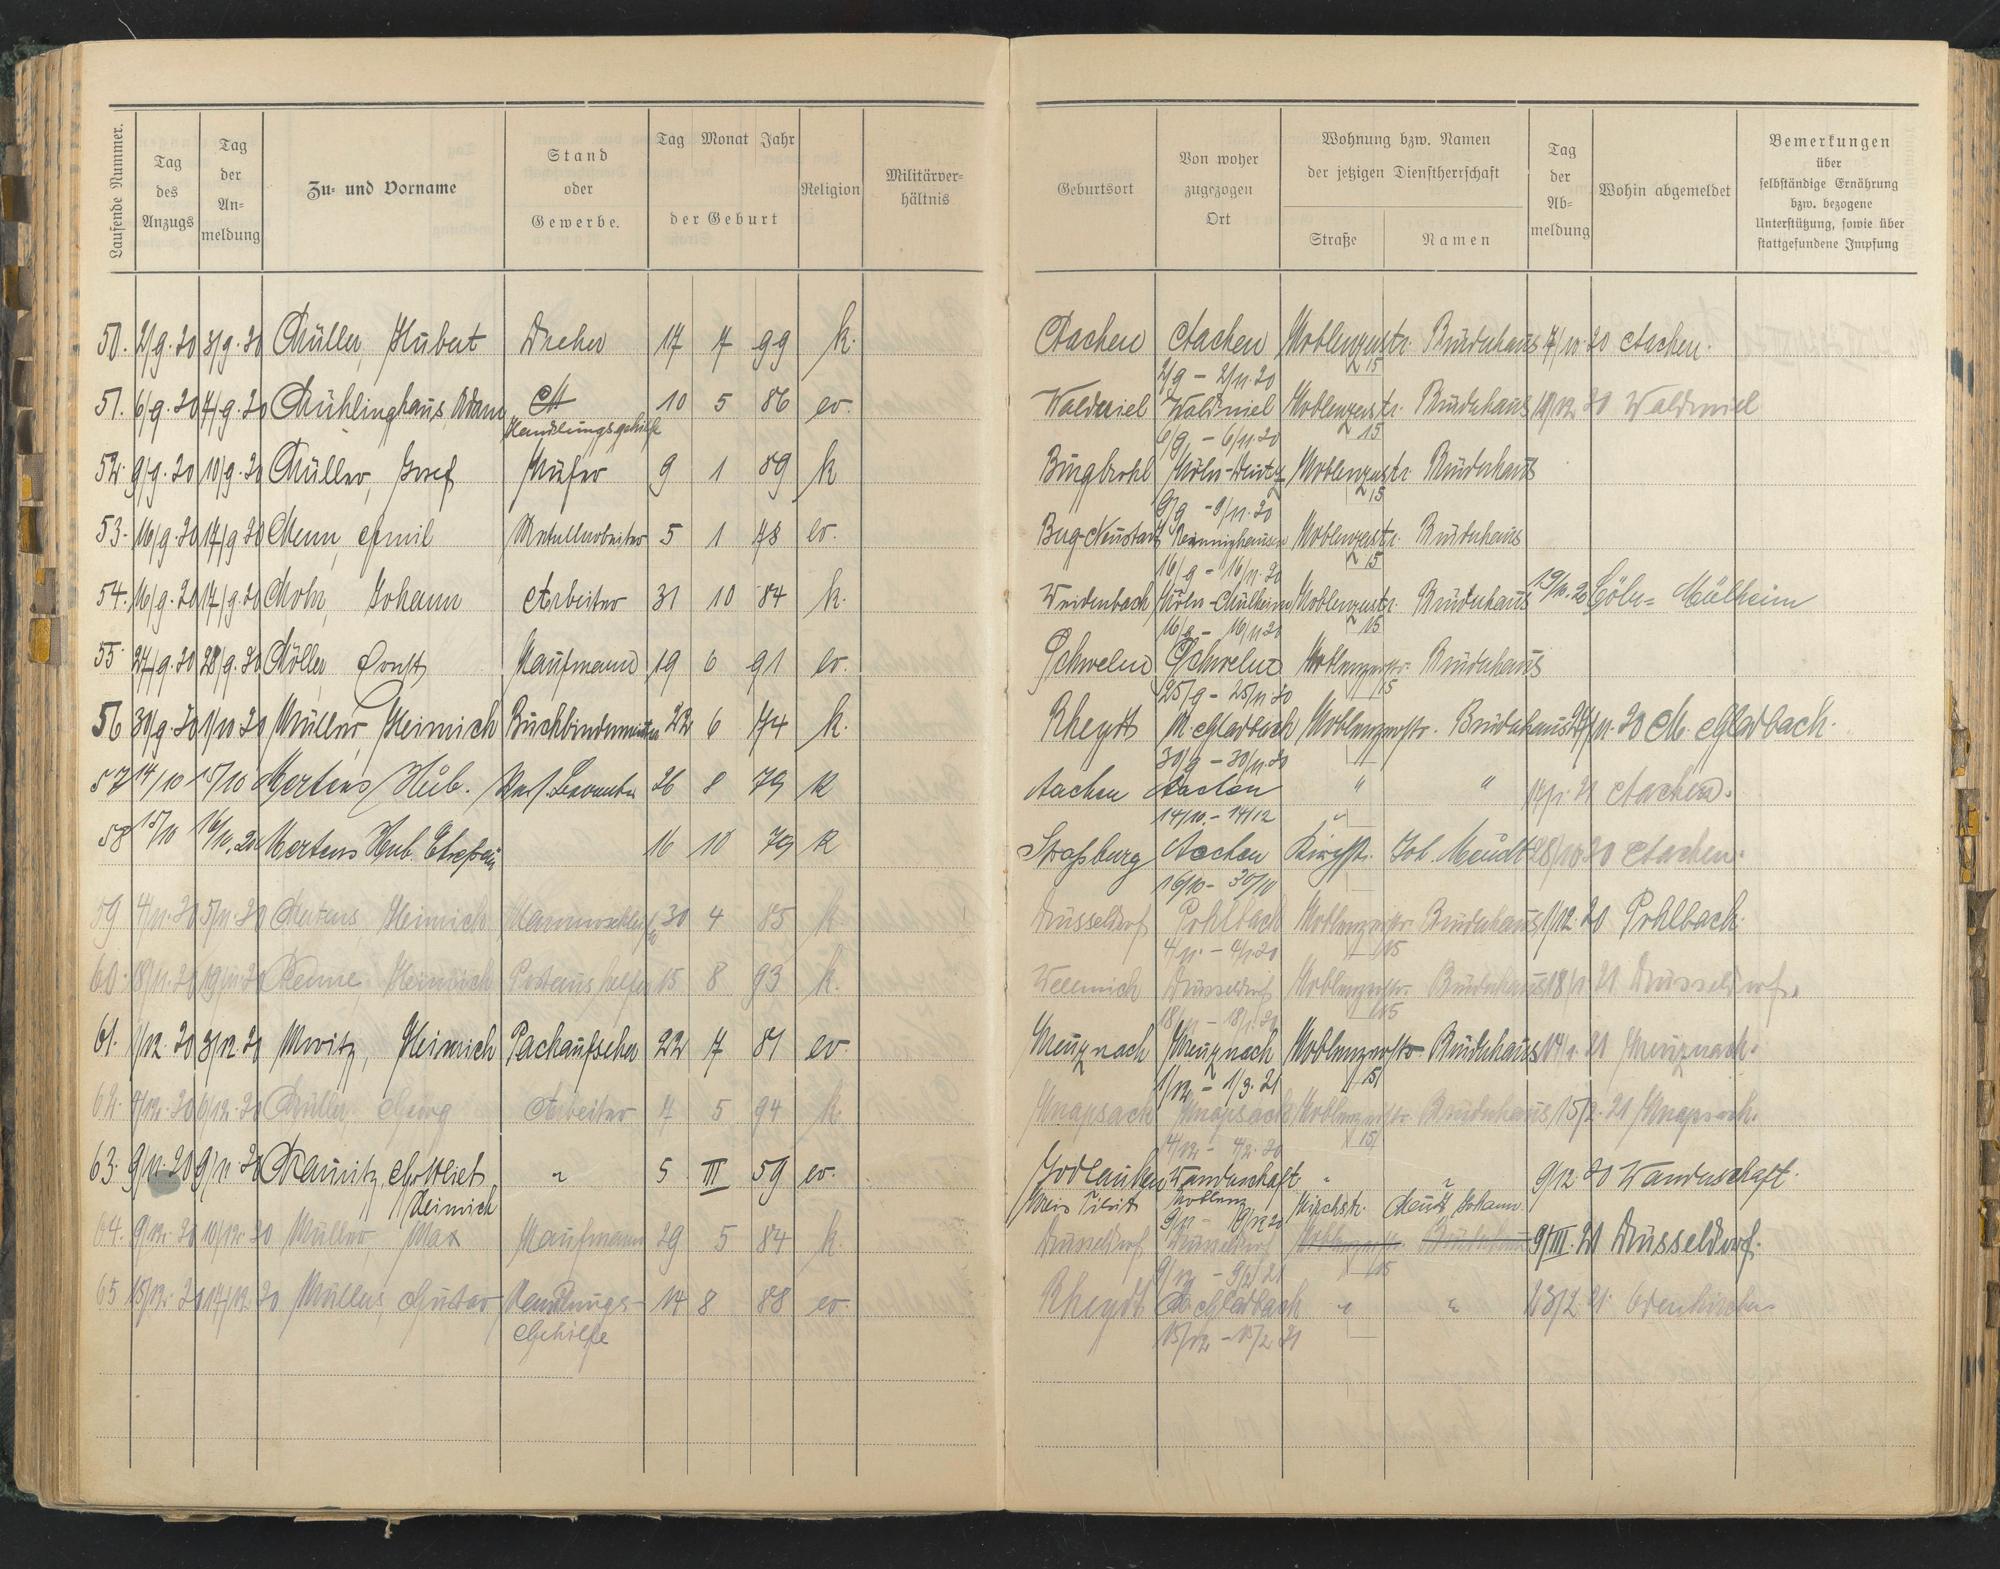 Laufende Nummer.
Tag des Anzugs
Tag der An-meldung
Zu- und Vorname
Stand oder Gewerbe.
Tag Monat Jahr der Geburt
Religion
Militärver-hältnis
Geburtsort
Von woher zugezogen Ort
Wohnung bzw. Namen der jetzigen Dienstherrschaft
Straße
Namen
Tag der Ab-meldung
Wohin abgemeldet
Bemerkungen über selbständige Ernährung bzw. bezogene Unterstützung, sowie über stattgefundene Impfung
50. 2/9.20 3/9.20 Müller, Hubert Dreher 17 7 99 k. Aachen Aachen Koblenzerstr. Brüderhaus 7/11.20 Aachen.
2/9 - 2/11.20 15
51. 6/9.20 7/9.20 Mühlinghaus, Adam 10 5 86 ev. Waldniel Waldniel Koblenzerstr. Brüderhaus Waldniel
Handlungsgehilfe 6/9. - 6/11.20 15
52. 9/9.20 10/9.20 Müller, Josef Küfer 9 1 89 k Burgbrohl Köln-Deutz Koblenzerstr. Brüderhaus
9/9 - 9/11.20 15
53. 16/9.20 17/9.20 Menn, Emil Metallarbeiter 5 1 78 ev. Koblenzerstr. Brüderhaus
16/9 - 16/11.20 15
54. 16/9.20 17/9.20 Mohr, Johann Arbeiter 31 10 84 k. Weidenbach Köln-Mülheim Koblenzerstr. Brüderhaus 19/11.20 Cöln-Mülheim
16/9 - 16/11 20 15
55. 27/9.20 28/9.20 Möller, Ernst Kaufmann 19 6 91 ev. Schwelm Schwelm Koblenzerstr. Brüderhaus
25/9 - 25/11.20 15
56 30/9.20 1/10.20 Müller, Heinrich Buchbindermeister 22 6 74 k. Rheydt M. Gladbach Koblenzerstr. Brüderhaus M. Gladbach.
30/9 - 30/11.20
57 14/10 15/10 Mertens, Hub. 26 8 79 k Aachen Aachen " " 14/1. 21 Aachen.
14/10. - 14/12
58 15/10 16/10.20 Mertens Hub. Ehefrau 16 10 79 k Straßburg Aachen Kirchstr. Joh. Meudt 28/10.20 Aachen.
16/10 - 30/10
59 4/11.20 5/11.20 Mertens, Heinrich 30 4 85 k Düsseldorf Pohlbach Koblenzerstr. Brüderhaus 1/12.20 Pohlbach.
4/11. - 4/1.20 15
60. 18/11.20 19/11.20 Heinrich Postaushelfer 15 8 93 k. Wellmich Düsseldorf Koblenzerstr. Brüderhaus 18/1 21 Düsseldorf.
18/11 - 18/1.20 15
61. 1/12.20 3/12.20 Moritz, Heinrich Packaufseher 22 7 81 ev. Kreuznach Kreuznach Koblenzerstr. Brüderhaus 21 Kreuznach.
1/12 - 1/3.21 15
62. 4/12.20 6/12.20 Müller Georg Arbeiter 4 5 94 k. Knapsack Knapsack Koblenzerstr. Brüderhaus 15/2.21 Knapsack.
4/12 - 4/2.20 15
63. 9/11.20 9/11.20 Gottlieb " 5 III 59 ev. Jodlauken Wanderschaft " " 9/12.20 Wanderschaft.
Heinrich Kreis Tilsit Koblenz Kirchstr. Meudt Johann.
64. 9/12.20 10/12.20 Müller, Max Kaufmann 29 5 84 k. Düsseldorf Düsseldorf Koblenzerstr. Brüderhaus 9/III.21 Düsseldorf.
9/12 - 9/2 21 15
65 15/12.20 17/12.20 Müller, Gustav Handlungs- 14 8 88 ev. Rheydt M. Gladbach " " 23/2.21 Odenkirchen
Gehilfe 15/12 - 15/2 21